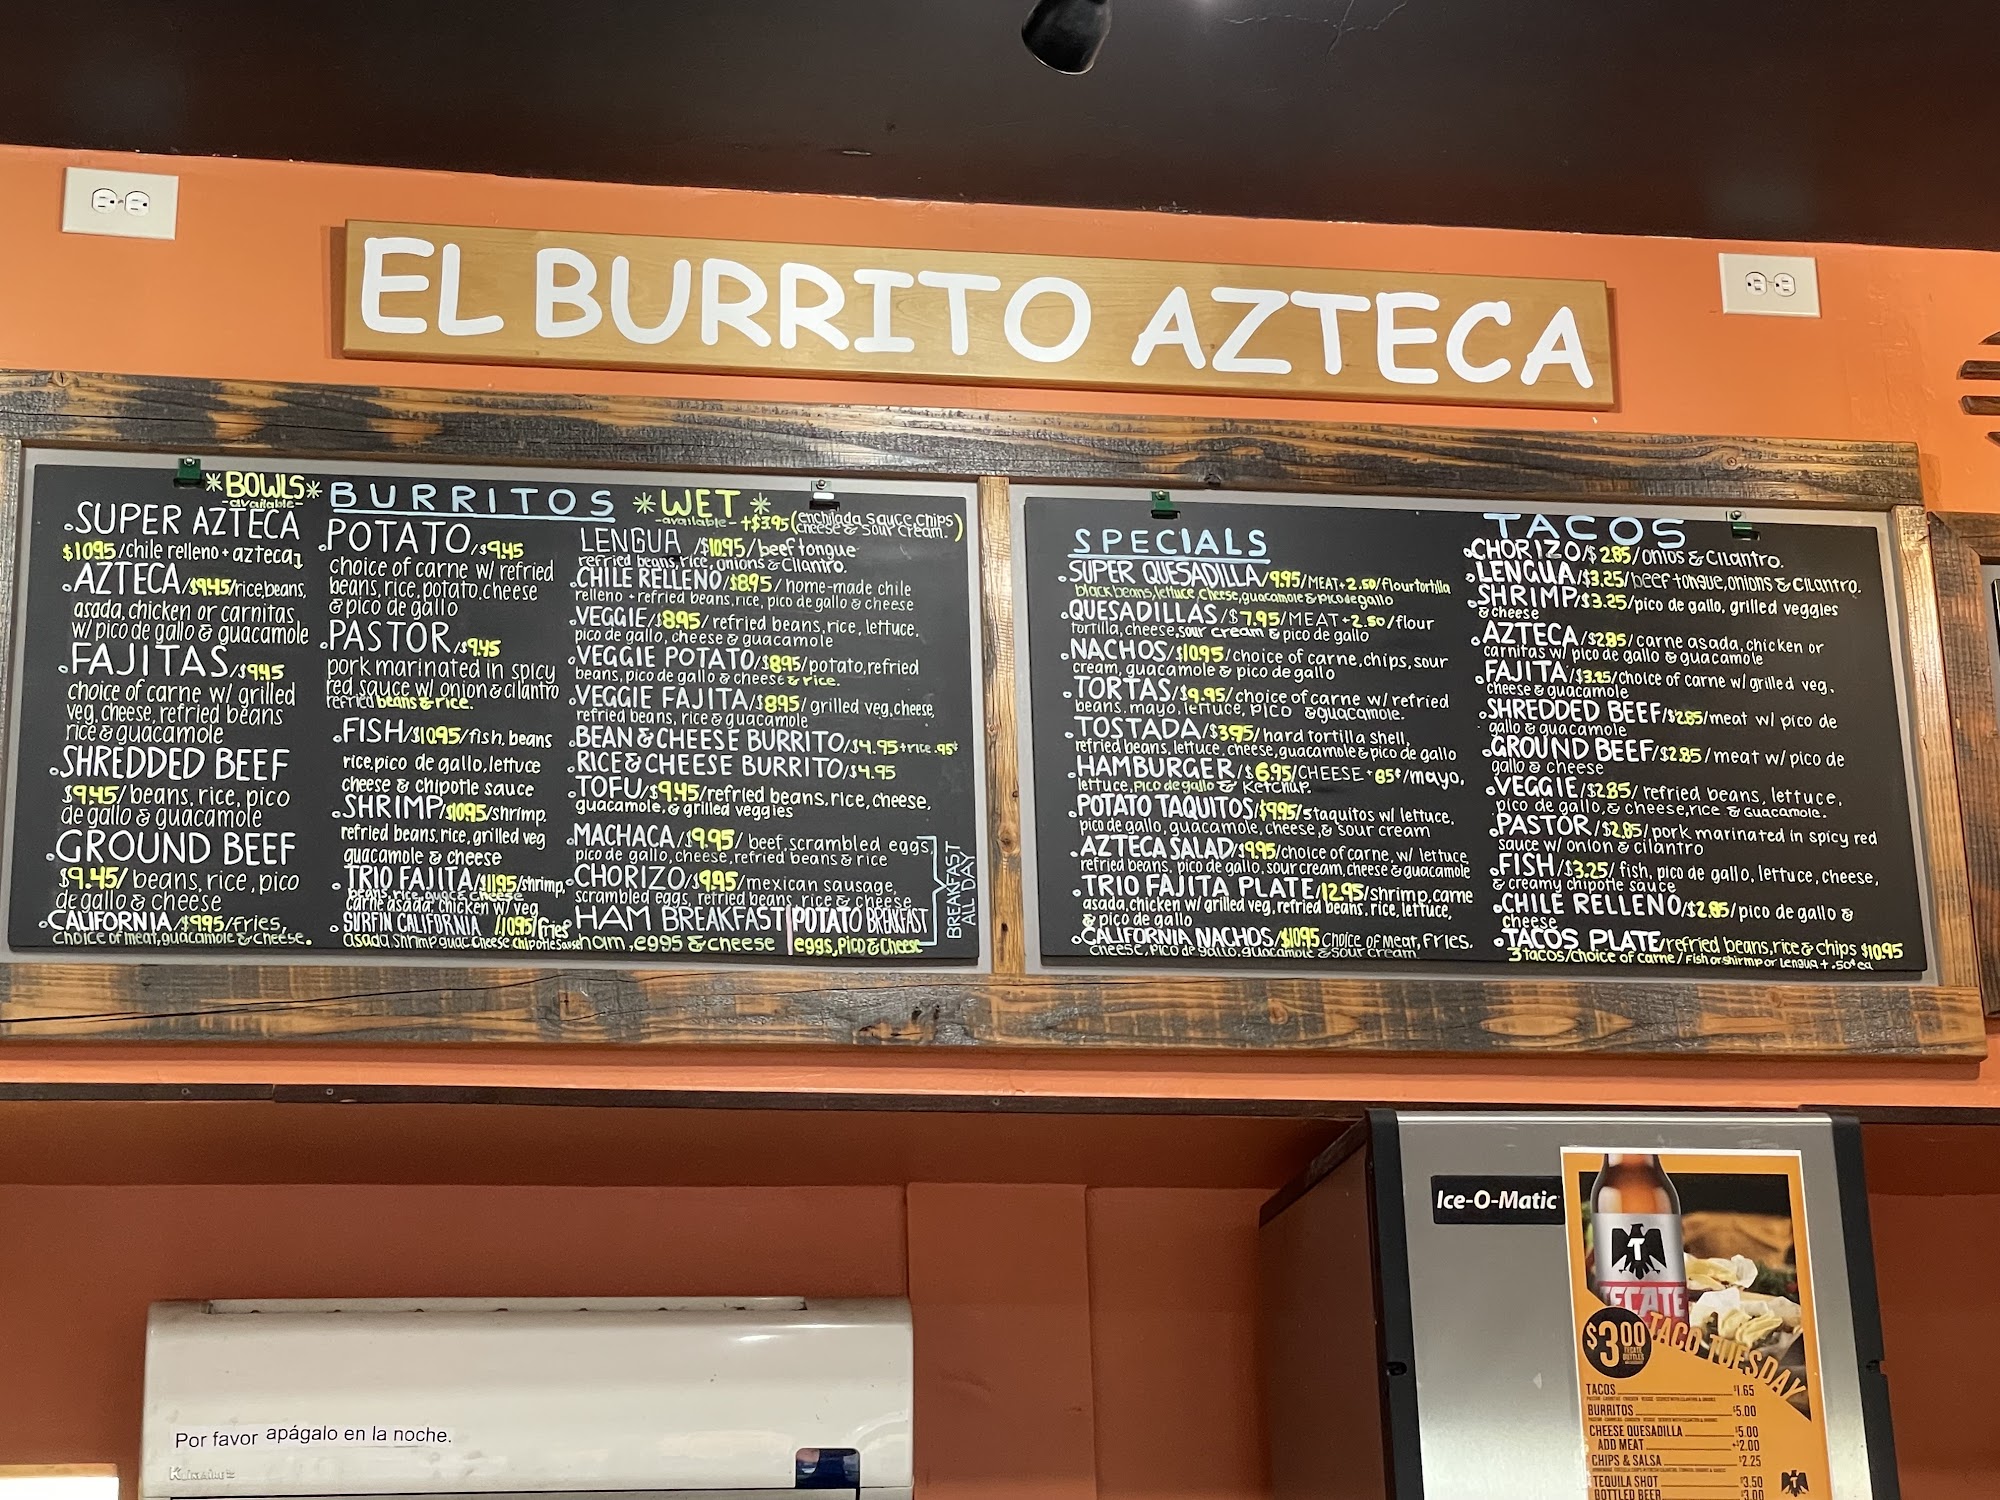 EL BURRITO AZTECA
*BOWLS*
-available-
BURRITOS
*WET*
-available- +$3.95 (enchilada sauce, chips
cheese & sour cream.)
SUPER AZTECA
$10.95/chile relleno + azteca
AZTECA/$9.45/rice, beans,
asada, chicken or carnitas
w/ pico de gallo & guacamole
FAJITAS/$9.45
choice of carne w/ grilled
veg, cheese, refried beans
rice & guacamole
SHREDDED BEEF
$9.45/ beans, rice, pico
de gallo & guacamole
GROUND BEEF
$9.45/ beans, rice, pico
de gallo & cheese
CALIFORNIA/$9.95/fries,
choice of meat, guacamole & cheese.
POTATO/$9.45
choice of carne w/ refried
beans, rice, potato, cheese
& pico de gallo
PASTOR/$9.45
pork marinated in spicy
red sauce w/ onion & cilantro
refried beans & rice.
FISH/$10.95/fish, beans
rice, pico de gallo, lettuce
cheese & chipotle sauce
SHRIMP/$10.95/shrimp,
refried beans, rice, grilled veg
guacamole & cheese
TRIO FAJITA/$11.95/shrimp,
beans, rice, guac & cheese
carne asada, chicken w/ veg
SURFIN CALIFORNIA /10.95/fries
asada, shrimp, guac, cheese, chipotle sauce
LENGUA /$10.95/beef tongue
refried beans, rice, onions & cilantro.
CHILE RELLENO/$8.95/ home-made chile
relleno + refried beans, rice, pico de gallo & cheese
VEGGIE/$8.95/ refried beans, rice, lettuce,
pico de gallo, cheese & guacamole
VEGGIE POTATO/$8.95/potato, refried
beans, pico de gallo & cheese & rice.
VEGGIE FAJITA/$8.95/ grilled veg, cheese,
refried beans, rice & guacamole
BEAN & CHEESE BURRITO/$4.95+rice .95¢
RICE & CHEESE BURRITO/$4.95
TOFU/$9.45/refried beans, rice, cheese,
guacamole, & grilled veggies
MACHACA/$9.95/ beef, scrambled eggs,
pico de gallo, cheese, refried beans & rice
CHORIZO/$9.95/mexican sausage,
scrambled eggs, refried beans, rice & cheese
HAM BREAKFAST
ham, eggs & cheese
POTATO BREAKFAST
eggs, Pico & Cheese
BREAKFAST
ALL DAY
SPECIALS
SUPER QUESADILLA/9.95/MEAT+2.50/flour tortilla
black beans, lettuce, cheese, guacamole & pico de gallo
QUESADILLAS/$7.95/MEAT+2.50/flour
tortilla, cheese, sour cream & pico de gallo
NACHOS/$10.95/choice of carne, chips, sour
cream, guacamole & pico de gallo
TORTAS/$9.95/choice of carne w/ refried
beans, mayo, lettuce, pico & guacamole.
TOSTADA/$3.95/hard tortilla shell,
refried beans, lettuce, cheese, guacamole & pico de gallo
HAMBURGER/$6.95/CHEESE + 85¢/mayo,
lettuce, pico de gallo & Ketchup.
POTATO TAQUITOS/$9.95/5 taquitos w/ lettuce,
pico de gallo, guacamole, cheese, & sour cream
AZTECA SALAD/$9.95/choice of carne, w/ lettuce
refried beans, pico de gallo, sour cream, cheese & guacamole
TRIO FAJITA PLATE/12.95/shrimp, carne
asada, chicken w/ grilled veg, refried beans, rice, lettuce,
& pico de gallo
CALIFORNIA NACHOS/$10.95 choice of meat, fries,
cheese, pico de gallo, guacamole & sour cream
TACOS
CHORIZO/$2.85/onios & cilantro.
LENGUA/$3.25/beef tongue, onions & cilantro.
SHRIMP/$3.25/pico de gallo, grilled veggies
& cheese
AZTECA/$2.85/carne asada, chicken or
carnitas w/ pico de gallo & guacamole
FAJITA/$3.25/choice of carne w/ grilled veg,
cheese & guacamole
SHREDDED BEEF/$2.85/meat w/ pico de
gallo & guacamole
GROUND BEEF/$2.85/ meat w/ pico de
gallo & cheese
VEGGIE/$2.85/ refried beans, lettuce,
pico de gallo, & cheese, rice & Guacamole.
PASTOR/$2.85/pork marinated in spicy red
sauce w/ onion & cilantro
FISH/$3.25/ fish, pico de gallo, lettuce, cheese,
& creamy chipotle sauce
CHILE RELLENO/$2.85/pico de gallo &
cheese
TACOS PLATE/refried beans, rice & chips $10.95
3 tacos/choice of carne/ Fish or shirmp or Lengua + .50¢ ea
Por favor apágalo en la noche.
Ice-O-Matic
T
TECATE
$3.00
TECATE
BOTTLES
TACO TUESDAY
TACOS $1.65
BURRITOS $5.00
CHEESE QUESADILLA $5.00
ADD MEAT +$2.00
CHIPS & SALSA $2.25
TEQUILA SHOT $3.50
BOTTLED BEER $3.00